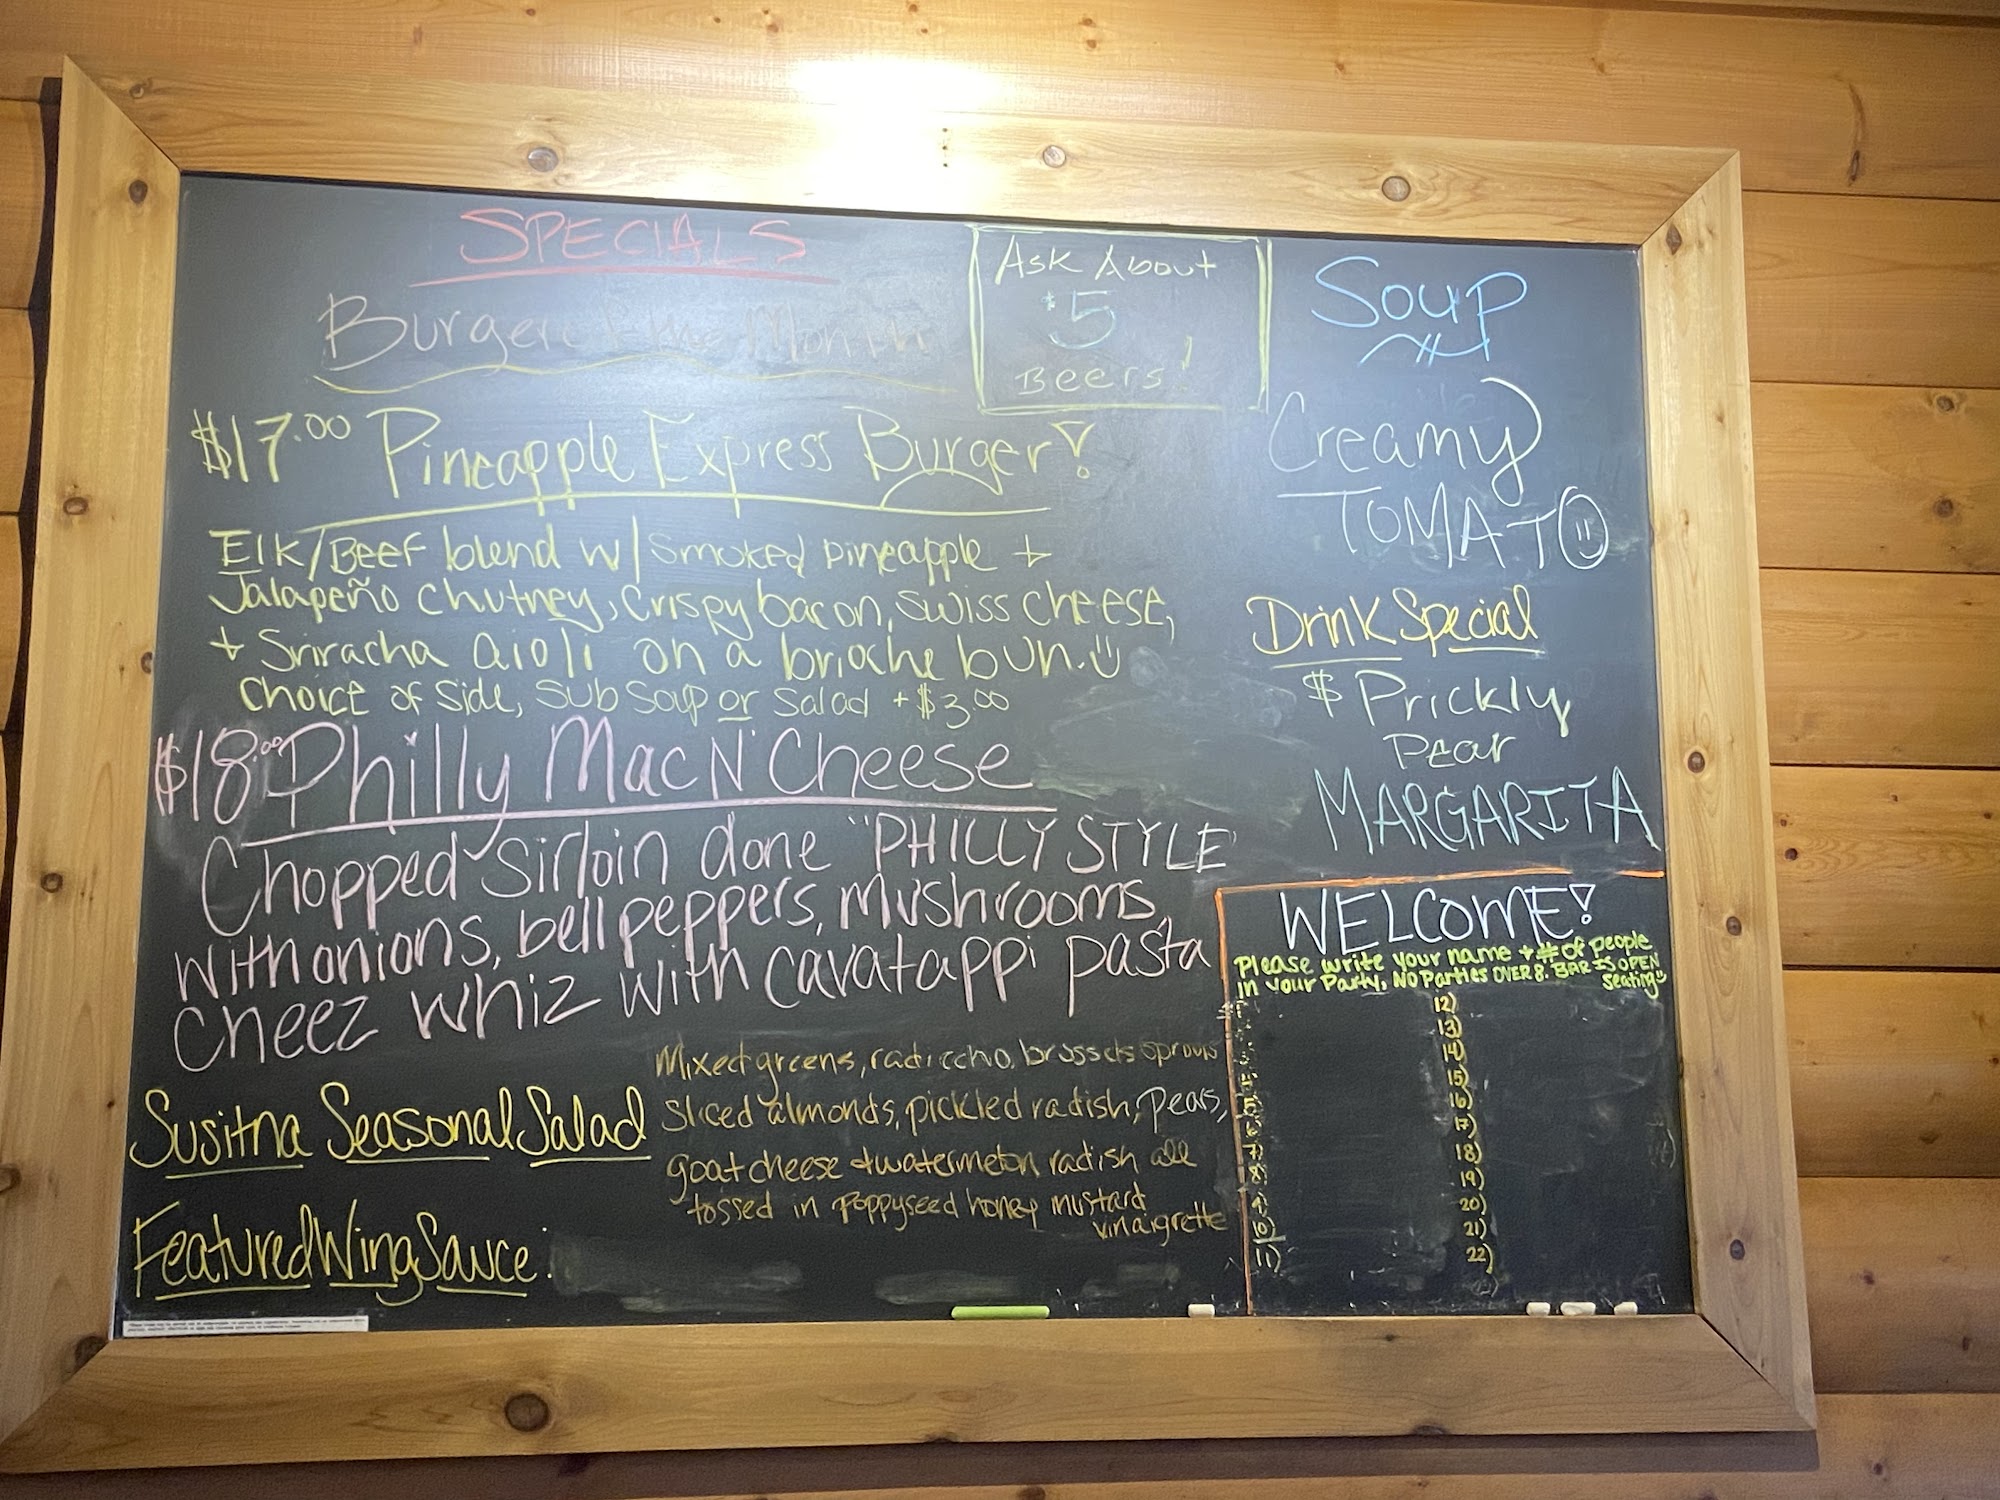 SPECIALS
Burger of the Month
$17.00 Pineapple Express Burger!
Elk/Beef blend w/ smoked pineapple +
Jalapeño chutney, crispy bacon, swiss cheese,
+ Sriracha aioli on a brioche bun.
choice of side, sub soup or salad + $3.00
$18.00 Philly Mac N' Cheese
Chopped sirloin done "PHILLY STYLE"
with onions, bell peppers, mushrooms,
cheez whiz with cavatappi pasta
Susitna Seasonal Salad
Mixed greens, radicchio, brussels sprouts
sliced almonds, pickled radish, pears,
goat cheese + watermelon radish all
tossed in poppyseed honey mustard
vinaigrette
Featured Wing Sauce:
Ask About
$5
Beers!
Soup
Creamy
TOMATO
Drink Special
$ Prickly
Pear
MARGARITA
WELCOME!
Please write your name + # of people
in your Party, NO Parties OVER 8. BAR IS OPEN
seating
5)
6)
7)
8)
9)
10)
11)
12)
13)
14)
15)
16)
17)
18)
19)
20)
21)
22)